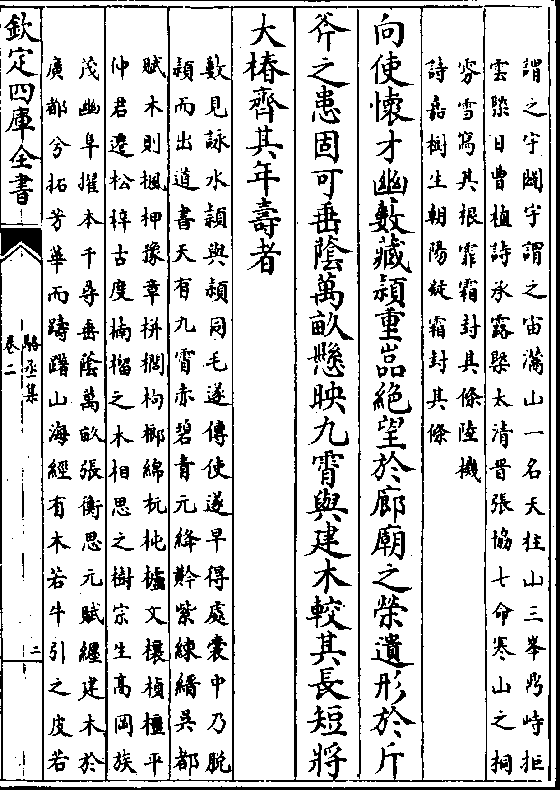 謂之宇闢宇謂之宙灊山一名天柱山三峯鼎峙拒
雲槩日曹植詩承露槩太清晋張協七命寒山之桐
雰雪寫其根霏霜封其條陸機
詩嘉樹生朝陽凝霜封其條
向使懷才幽藪藏頴重嵓絶望於廊廟之榮遺形於斤
斧之患固可垂陰萬畝懸映九霄與建木較其長短將
大椿齊其年壽者
數見詠水頴與頴同毛遂傳使遂早得處囊中乃脫
頴而出道書天有九霄赤碧青元絳黅紫練縉吳都
賦木則楓柙豫章栟櫚枸榔綿杬杶櫨文欀楨橿平
仲君遷松梓古度楠榴之木相思之樹宗生高岡族
茂幽阜擢本千尋垂陰萬畝張衡思元賦纒建木於
廣都兮拓芳華而躊躇山海經有木若牛引之皮若
欽定四庫全書
駱丞集
卷二
二